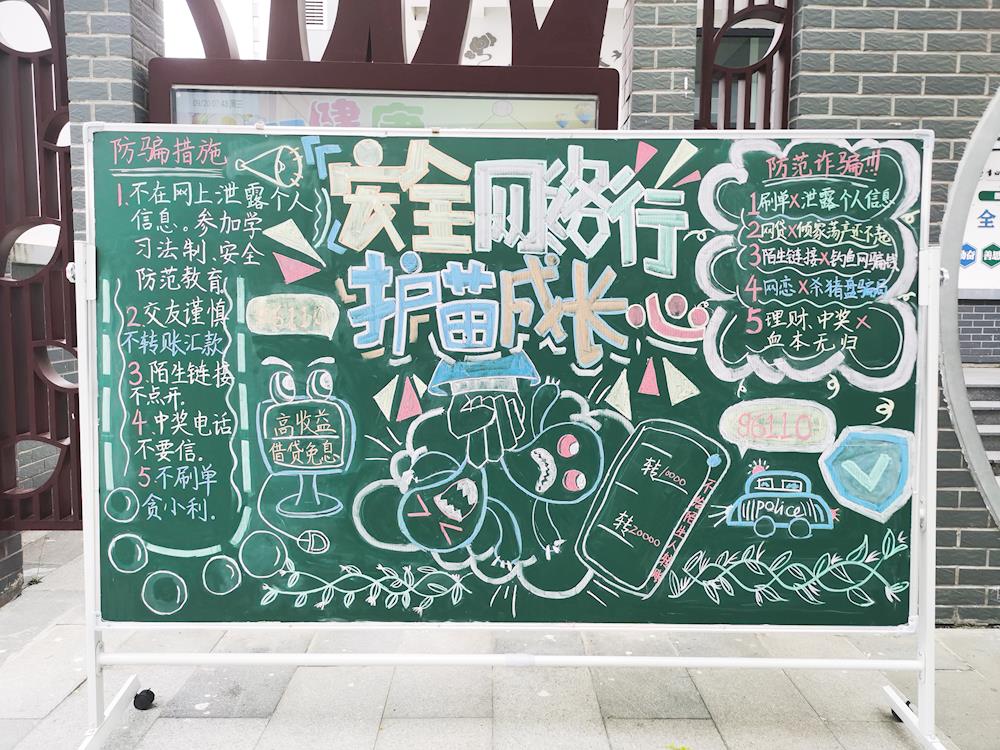 09/20 07:43 周三
健康
防骗措施
1.不在网上泄露个人
信息。参加学
习法制、安全
防范教育
2交友谨慎
不转账汇款
3.陌生链接
不点开.
4.中奖电话
不要信.
5不刷单
贪小利.
安全网络行
护苗成长
96110
高收益
借贷免息
转10000
转20000
防范诈骗!!!
1刷单×泄露个人信息
2网贷×倾家荡产还不起
3陌生链接×钓鱼网骗钱
4网恋×杀猪盘骗局
5理财、中奖×
血本无归
96110
police
全